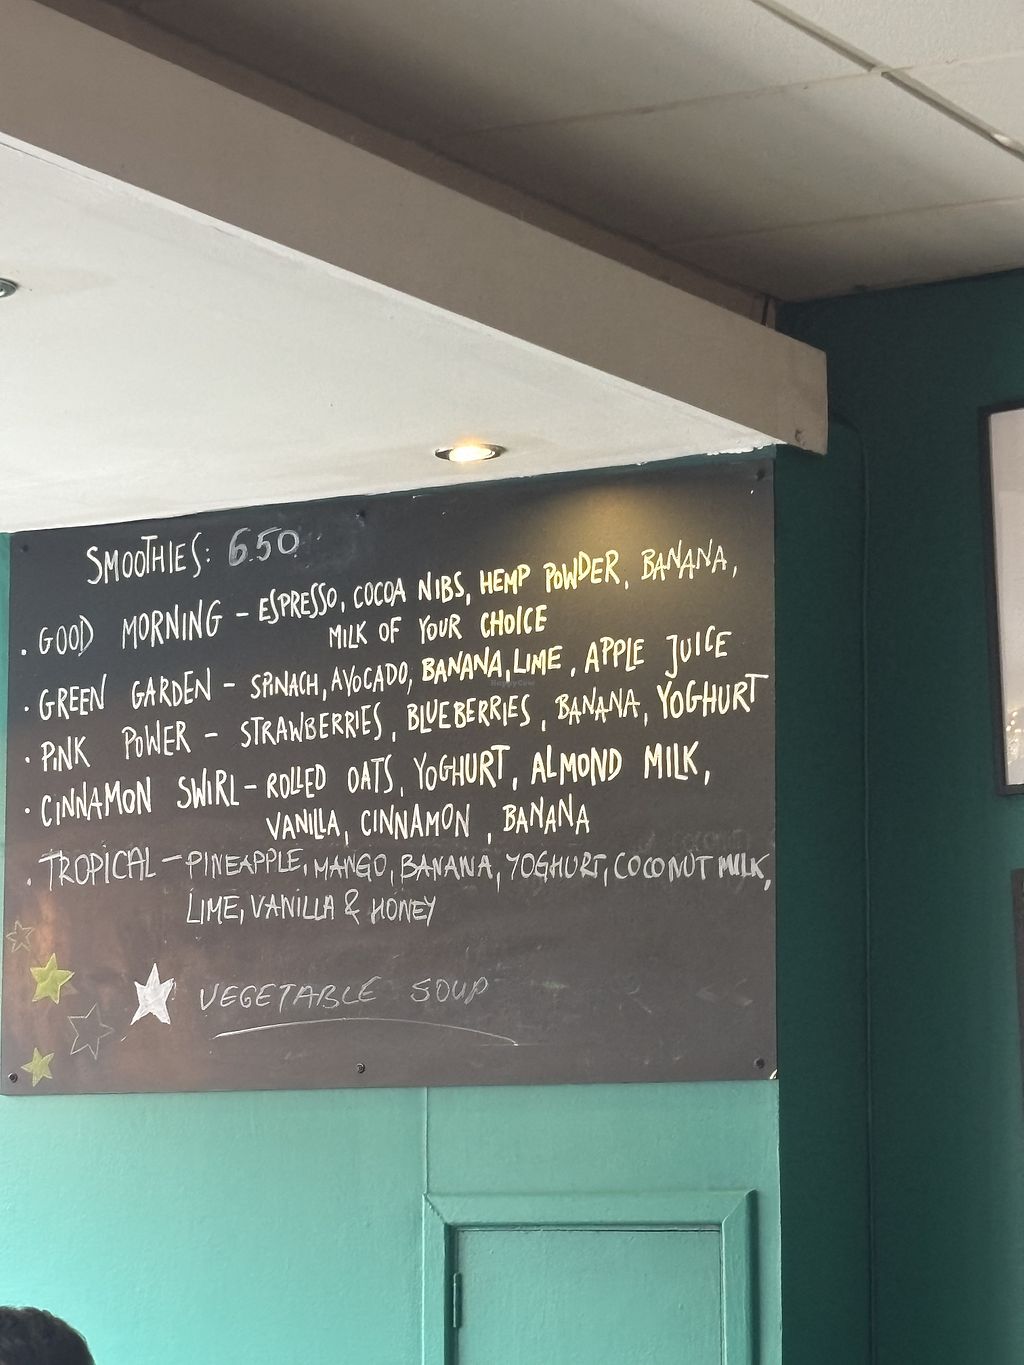 SMOOTHIES: 6.50
. GOOD MORNING - ESPRESSO, COCOA NIBS, HEMP POWDER, BANANA,
MILK OF YOUR CHOICE
. GREEN GARDEN - SPINACH, AVOCADO, BANANA, LIME, APPLE JUICE
. PINK POWER - STRAWBERRIES, BLUEBERRIES, BANANA, YOGHURT
. CINNAMON SWIRL - ROLLED OATS, YOGHURT, ALMOND MILK,
VANILLA, CINNAMON, BANANA
. TROPICAL - PINEAPPLE, MANGO, BANANA, YOGHURT, COCONUT MILK,
LIME, VANILLA & HONEY
VEGETABLE SOUP